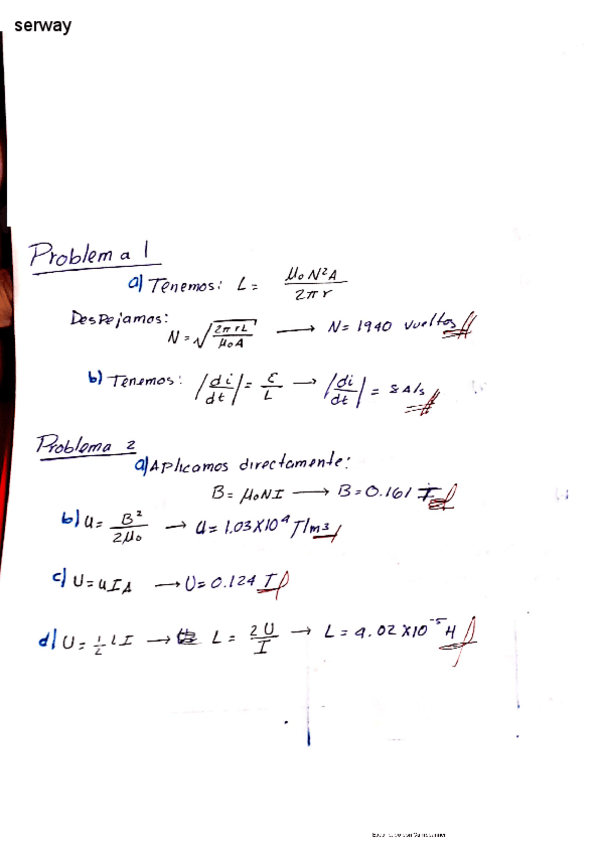 serway
Problema 1
a) Tenemos: L = μ₀N²A / 2πr
Despejamos:
N = √(2πrL / μ₀A) → N = 1940 vueltas
b) Tenemos: |di/dt| = ε/L → |di/dt| = 8 A/s
Problema 2
a) Aplicamos directamente:
B = μ₀NI → B = 0.161 T
b) u = B² / 2μ₀ → u = 1.03x10⁴ J/m³
c) U = uIA → U = 0.124 J
d) U = 1/2 LI → L = 2U / I → L = 4.02x10⁻⁵ H